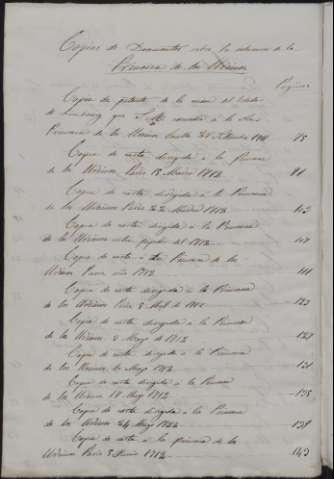 Copias de Documentos sobre la soberanía de la
Princesa de los Ursinos
Páginas
Copia de patente de la del Estado
de que S. M. concedió á la Sra.
Princesa de los Ursinos 28 1711 95
Copia de carta dirigida á la Princesa
de los Ursinos, París 18 Marzo 1712
Copia de carta dirigida á la Princesa
de los Ursinos París 22 1712 103
Copia de carta dirigida á la Princesa
de los Ursinos del 1712 107
Copia de carta á la Princesa de los
Ursinos año 1712 111
Copia de carta dirigida á la Princesa
de los Ursinos París 8 Abril de 1712 123
Copia de carta dirigida á la Princesa
de los Ursinos 2 Mayo de 1712 127
Copia de carta dirigida á la Princesa
de los Ursinos Mayo 1712 131
Copia de carta dirigida á la Princesa
de los Ursinos 18 Mayo 1712 135
Copia de carta dirigida á la Princesa
de los Ursinos 24 Mayo 1712 138
Copia de carta á la Princesa de los
Ursinos París 3 Junio 1712 143